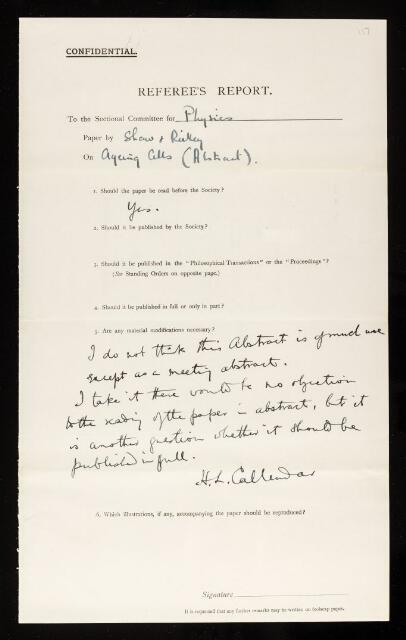 157
CONFIDENTIAL.
REFEREE'S REPORT.
To the Sectional Committee for Physics
Paper by Shaw &
On Ageing Cells (Abstract).
1. Should the paper be read before the Society?
Yes.
2. Should it be published by the Society?
3. Should it be published in the "Philosophical Transactions" or the "Proceedings"?
(See Standing Orders on opposite page.)
4. Should it be published in full or only in part?
5. Are any material modifications necessary?
I do not think this Abstract is of much use
except as a meeting abstract.
I take it there would be no objection
to the reading of the paper in abstract, but it
is another question whether it should be
published in full.
H. L. Callendar
6. Which illustrations, if any, accompanying the paper should be reproduced?
Signature
It is requested that any further remarks may be written on foolscap paper.